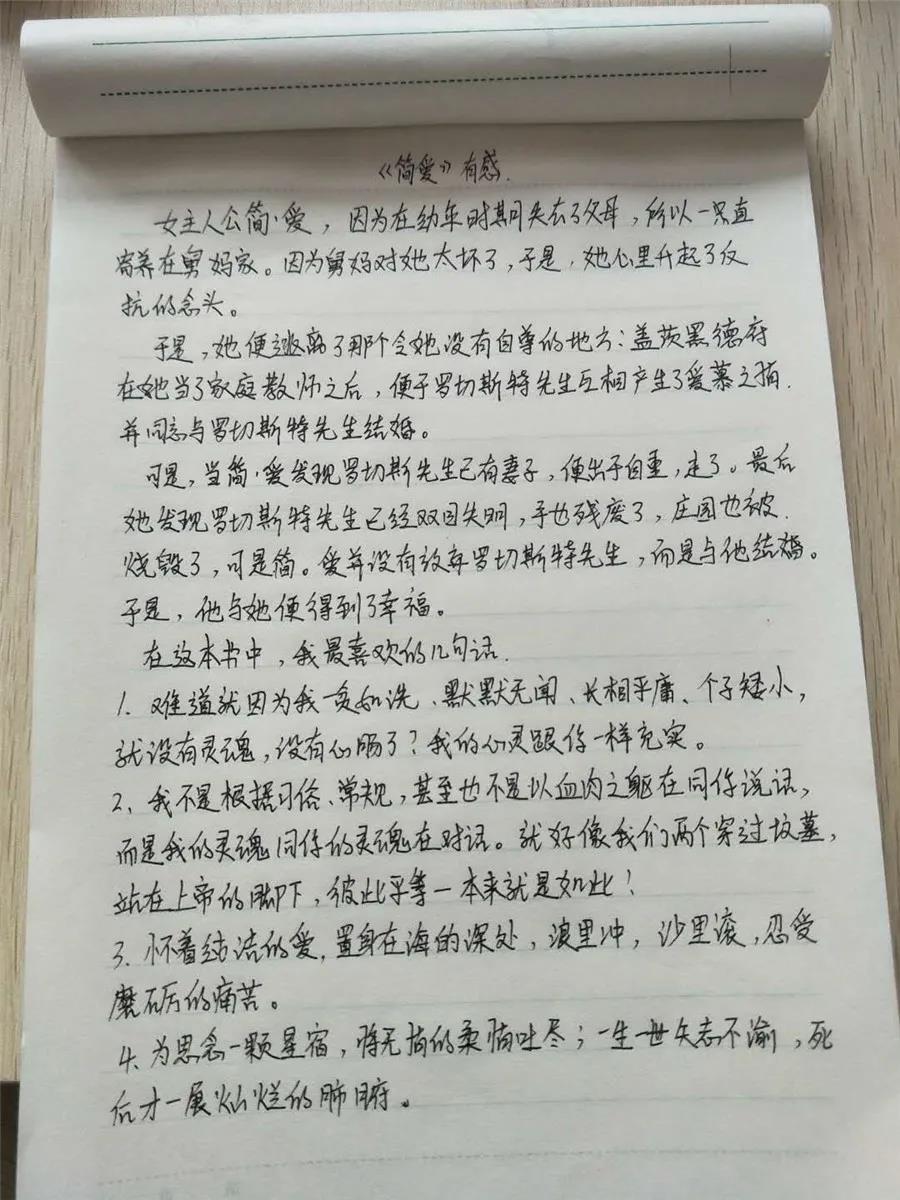 《简爱》有感.
女主人公简·爱，因为在幼年时期失去了父母，所以一只直
寄养在舅妈家。因为舅妈对她太坏了，于是，她心里升起了反
抗的念头。
于是，她便逃离了那个令她没有自尊的地方：盖茨黑德府
在她当了家庭教师之后，便于罗切斯特先生互相产生了爱慕之情.
并同意与罗切斯特先生结婚。
可是，当简·爱发现罗切斯先生已有妻子，便出于自重，走了。最后
她发现罗切斯特先生已经双目失明，手也残废了，庄园也被.
烧毁了，可是简。爱并没有放弃罗切斯特先生，而是与他结婚。
于是，他与她便得到了幸福。
在这本书中，我最喜欢的几句话.
1、难道就因为我贫如洗、默默无闻、长相平庸、个子矮小，
就没有灵魂，没有心肠了？我的心灵跟你一样充实。
2、我不是根据习俗、常规，甚至也不是以血肉之躯在同你说话，
而是我的灵魂同你的灵魂在对话。就好像我们两个穿过坟墓，
站在上帝的脚下，彼此平等一本来就是如此！
3、怀着纯洁的爱，置身在海的深处，浪里冲，沙里滚，忍受
磨砺的痛苦。
4、为思念一颗星宿，将无情的柔情吐尽；一生一世矢志不渝，死
后才一展灿烂的肺腑。